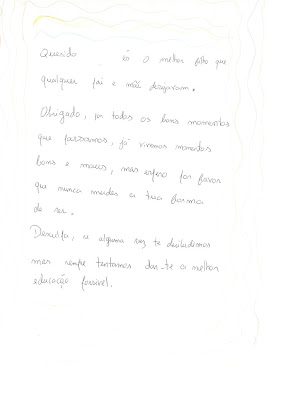 Querido és o melhor filho que
qualquer pai e mãe desejavam.
Obrigado, por todos os bons momentos
que passamos, já vivemos momentos
bons e maus, mas espero por favor
que nunca mudes a tua forma
de ser.
Desculpa, se alguma vez te desiludimos
mas sempre tentamos dar-te a melhor
educação possível.